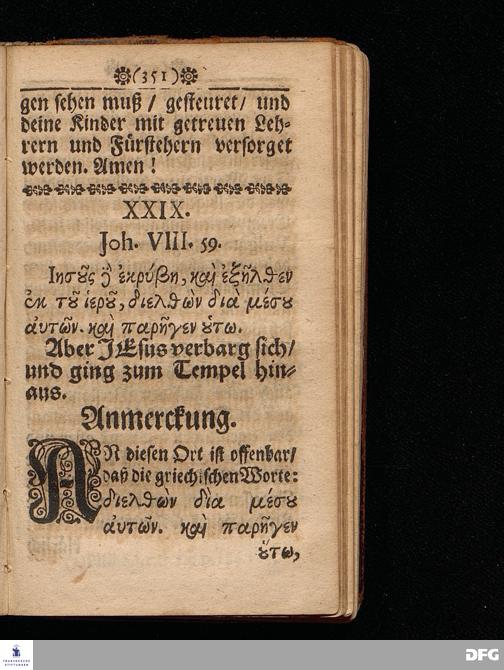 (351)
gen sehen muß / gesteuret / und
deine Kinder mit getreuen Leh-
rern und Fürstehern versorget
werden. Amen!
XXIX.
Joh. VIII. 59.
Ιησοῦς δὲ ἐκρύβη, καὶ ἐξῆλθεν
ἐκ τοῦ ἱεροῦ, διελθὼν διὰ μέσου
αὐτῶν. καὶ παρῆγεν οὕτω.
Aber JEsus verbarg sich /
und ging zum Tempel hin-
aus.
Anmerckung.
AN diesen Ort ist offenbar /
daß die griechischen Worte:
διελθων δὶα μέσου
αὐτῶν. καὶ παρῆγεν
οὕτω,
FRANCKESCHE
STIFTUNGEN
DFG